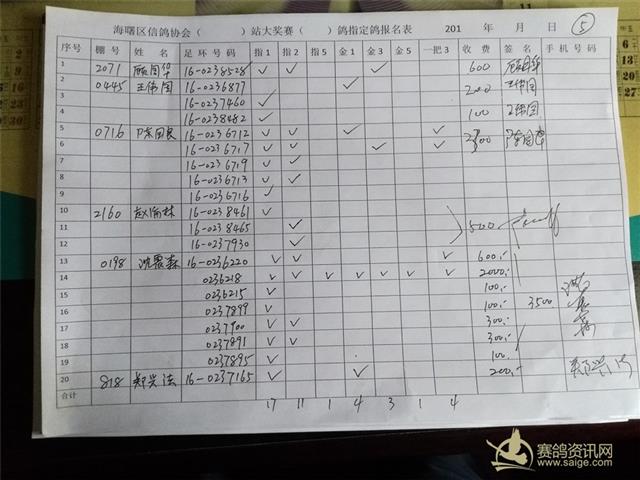 海曙区信鸽协会（ ）站大奖赛（ ）鸽指定鸽报名表 201 年 月 日 ⑤
序号 棚号 姓名 足环号码 指1 指2 指5 金1 金3 金5 一把3 收费 签名 手机号码
1 2071 顾国华 16-0238528 ✓ ✓ ✓ 600 顾国华
2 0445 王伟国 16-0236877 ✓ 200 王伟国
3 16-0237460 ✓
4 16-0238482 ✓ 100 王伟国
5 0716 陈国良 16-0236712 ✓ ✓ ✓ ✓
6 16-0236717 ✓ ✓ ✓ ✓
7 16-0236719 ✓ ✓
8 16-0236713 ✓ ✓
9 16-0236716 ✓
10 2160 16-0238461 ✓
11 16-0238465 ✓ 500
12 16-0237930 ✓
13 0198 16-0236220 ✓ ✓ ✓ 600.-
14 0236218 ✓ ✓ ✓ ✓ ✓ ✓ ✓ 2000.-
15 0236215 ✓ 100.-
16 0237899 ✓ 100.- 3500
17 0237900 ✓ ✓ 300.-
18 0237891 ✓ ✓ 300.-
19 0237895 ✓ 100.
20 818 郑兴法 16-0237165 ✓ ✓ 200.-
合计 17 11 1 4 3 1 4
赛鸽资讯网
www.saige.com